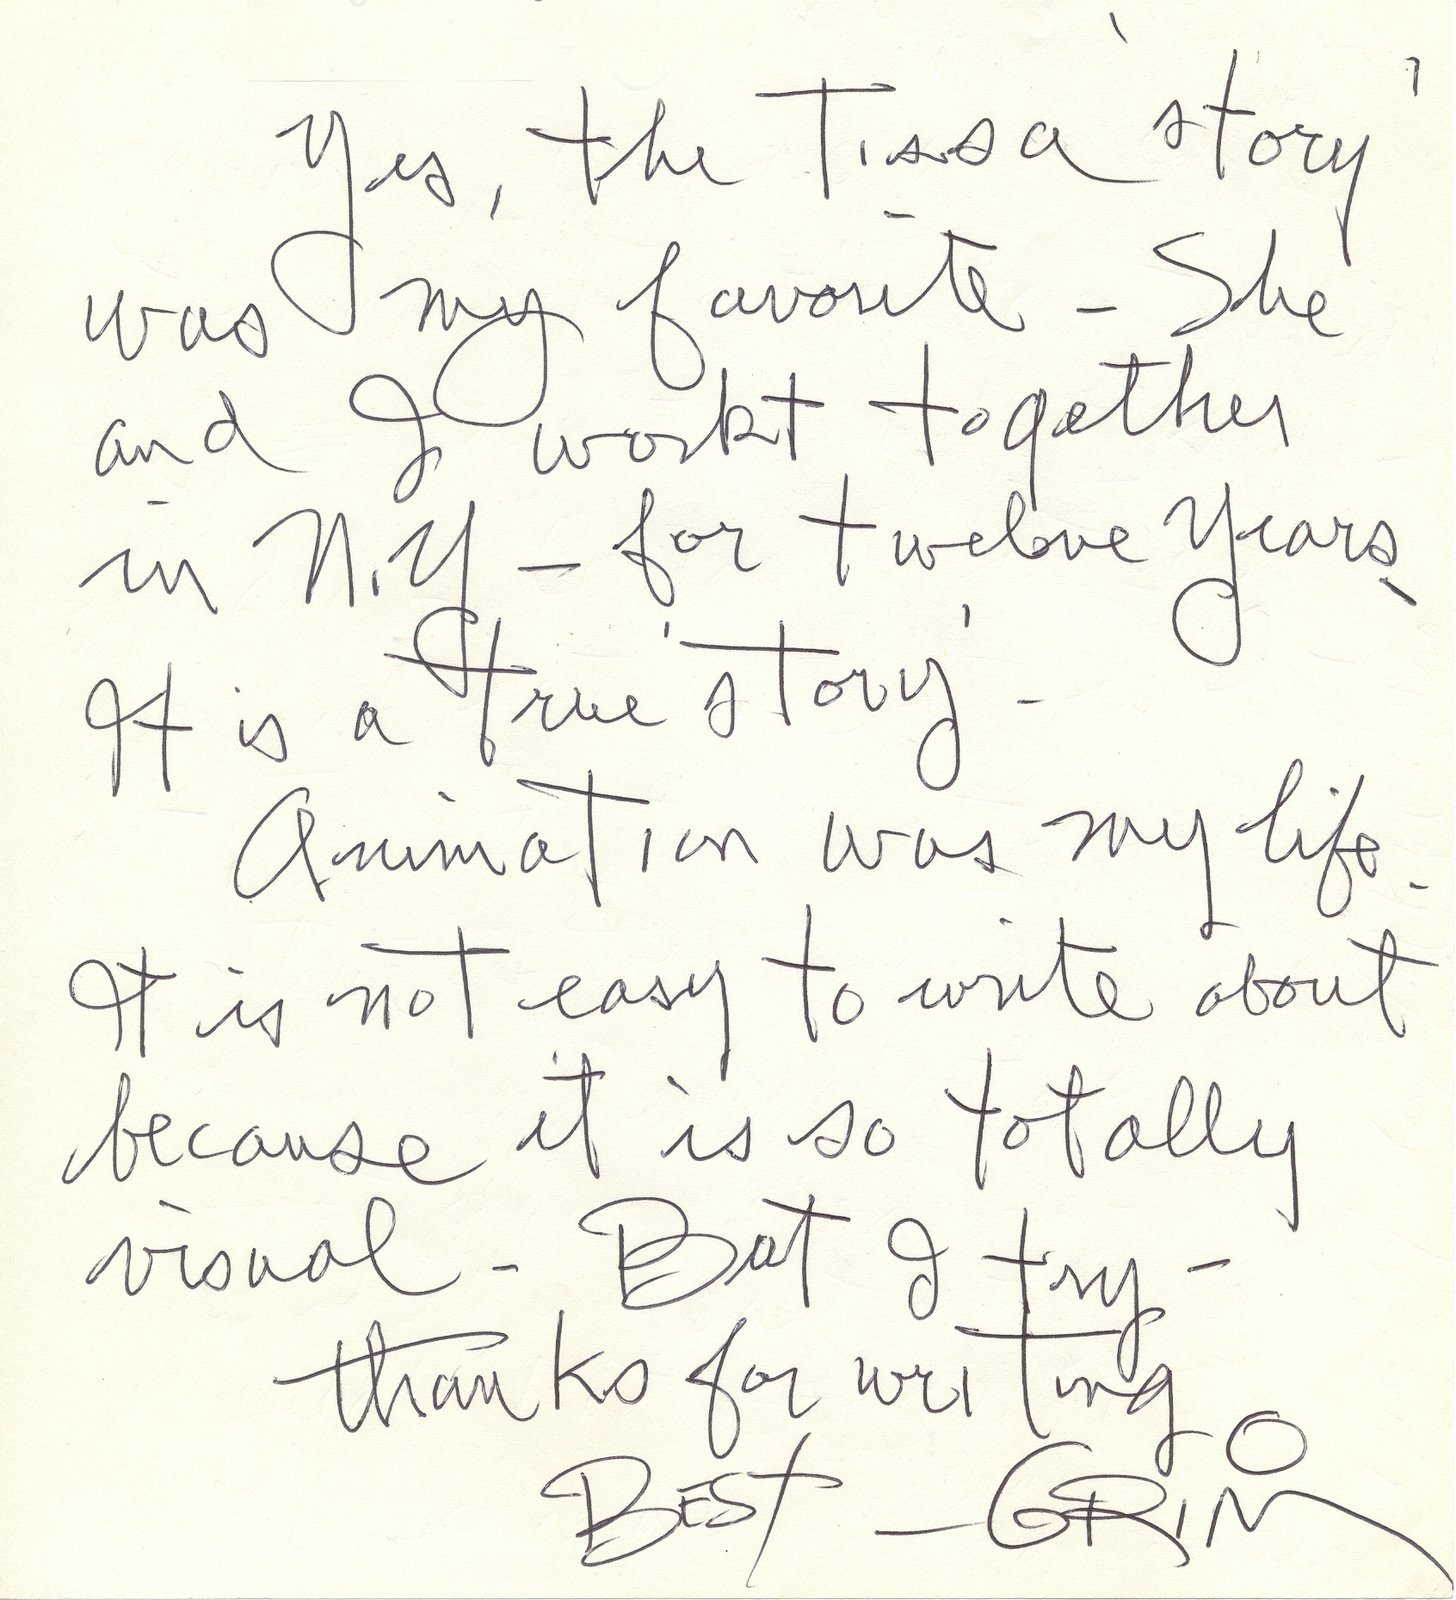 Yes, the Tissa 'story'
was my favorite - She
and I workt together
in N.Y - for twelve years.
It is a true 'story' -
Animation was my life.
It is not easy to write about
because it is so totally
visual - But I try -
thanks for writing
BEST - GRIM